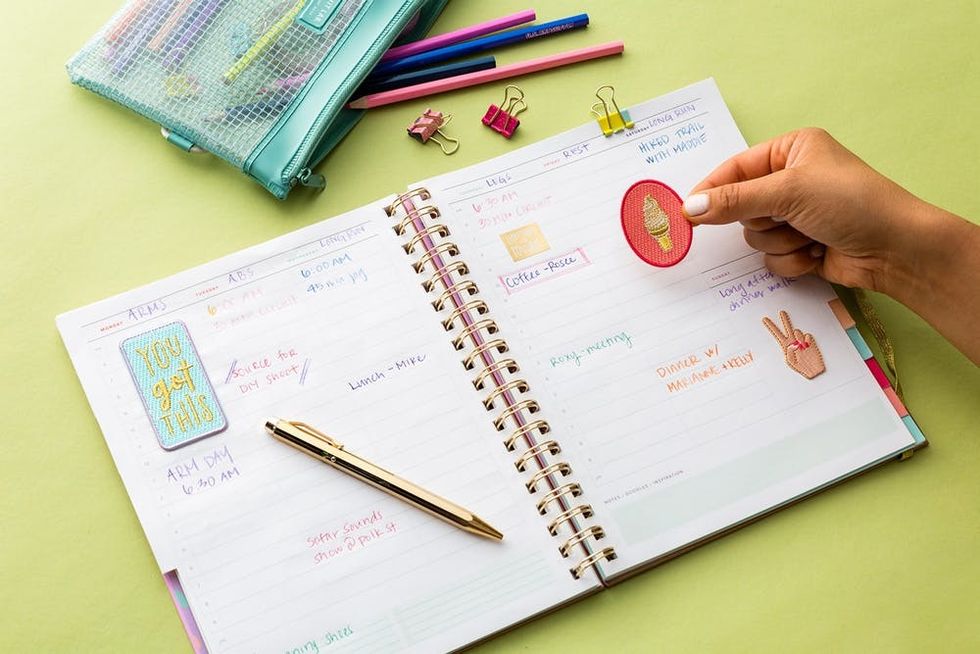 MONDAY ARMS
TUESDAY ABS
LONG RUN
YOU
got
THIS
ARM DAY
6:30 AM
6:00 AM
30 MIN CIRCUIT
SOURCE FOR
DIY SHOOT
Sofar Sounds
show @ polk st
6:00 AM
45 min jog
Lunch - Mike
shoes
LEGS
6:30 AM
30 MIN CIRCUIT
Coffee - Rosee
REST
Roxy - meeting
SATURDAY LONG RUN
HIKED TRAIL
WITH MADDIE
DINNER W/
MARIANNE + KELLY
SUNDAY
Long after
dinner walk
NOTES / DOODLES / INSPIRATION